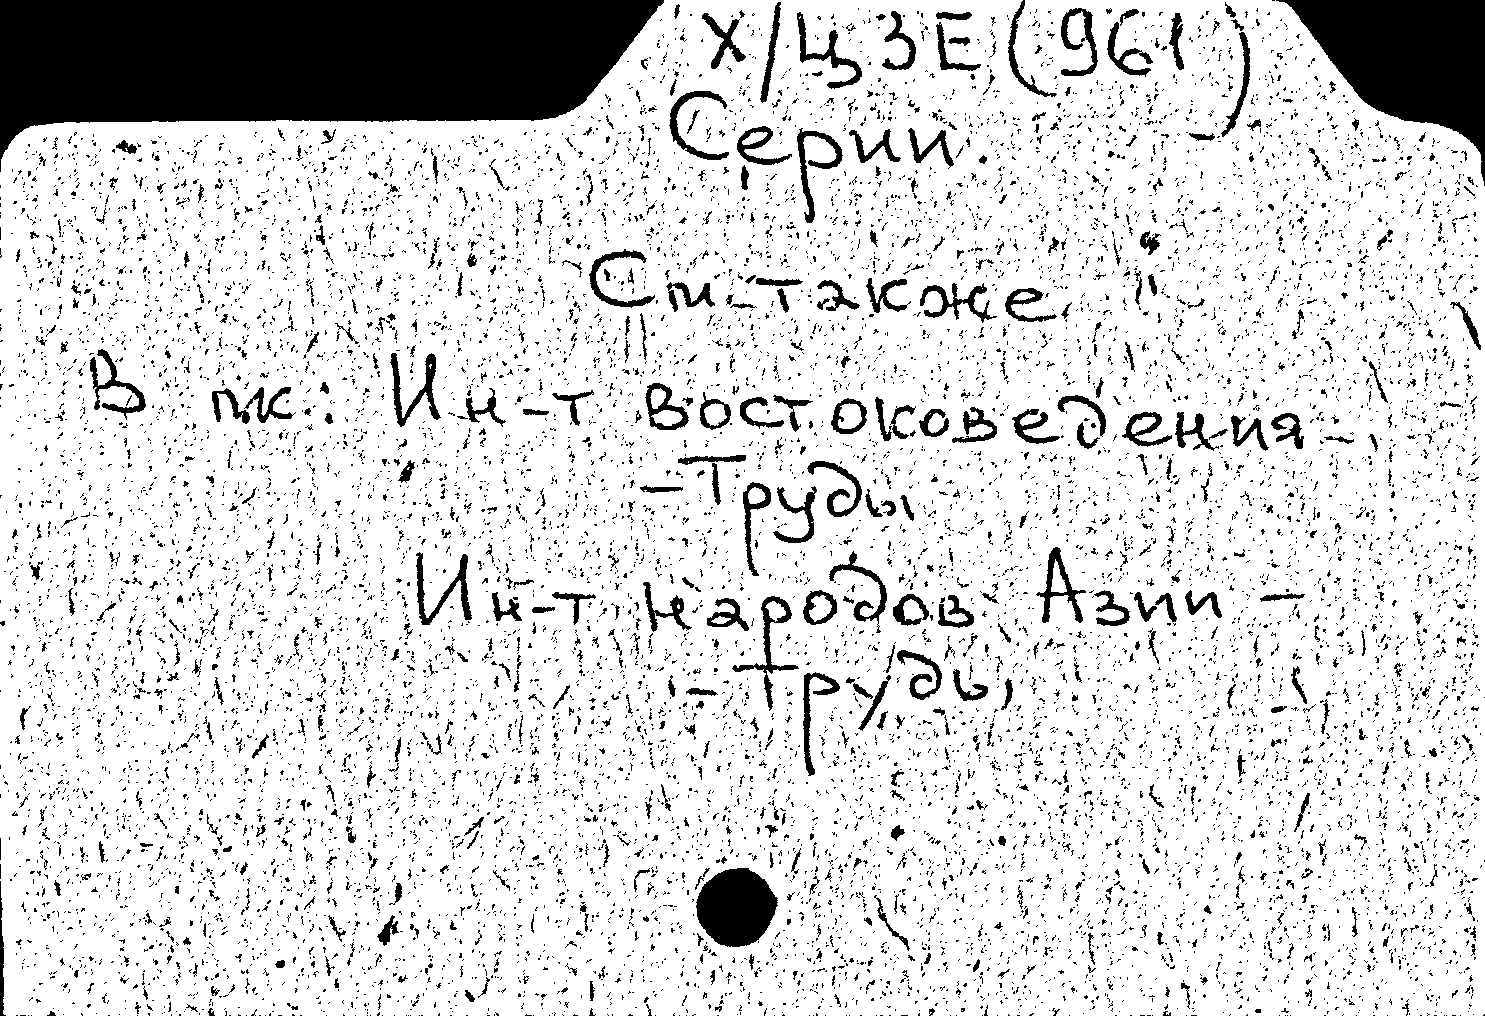 Х/Ц3Е(961)
Серии.
См. также
В пк: Ин-т востоковедения -
- Труды
Ин-т народов Азии -
- Труды